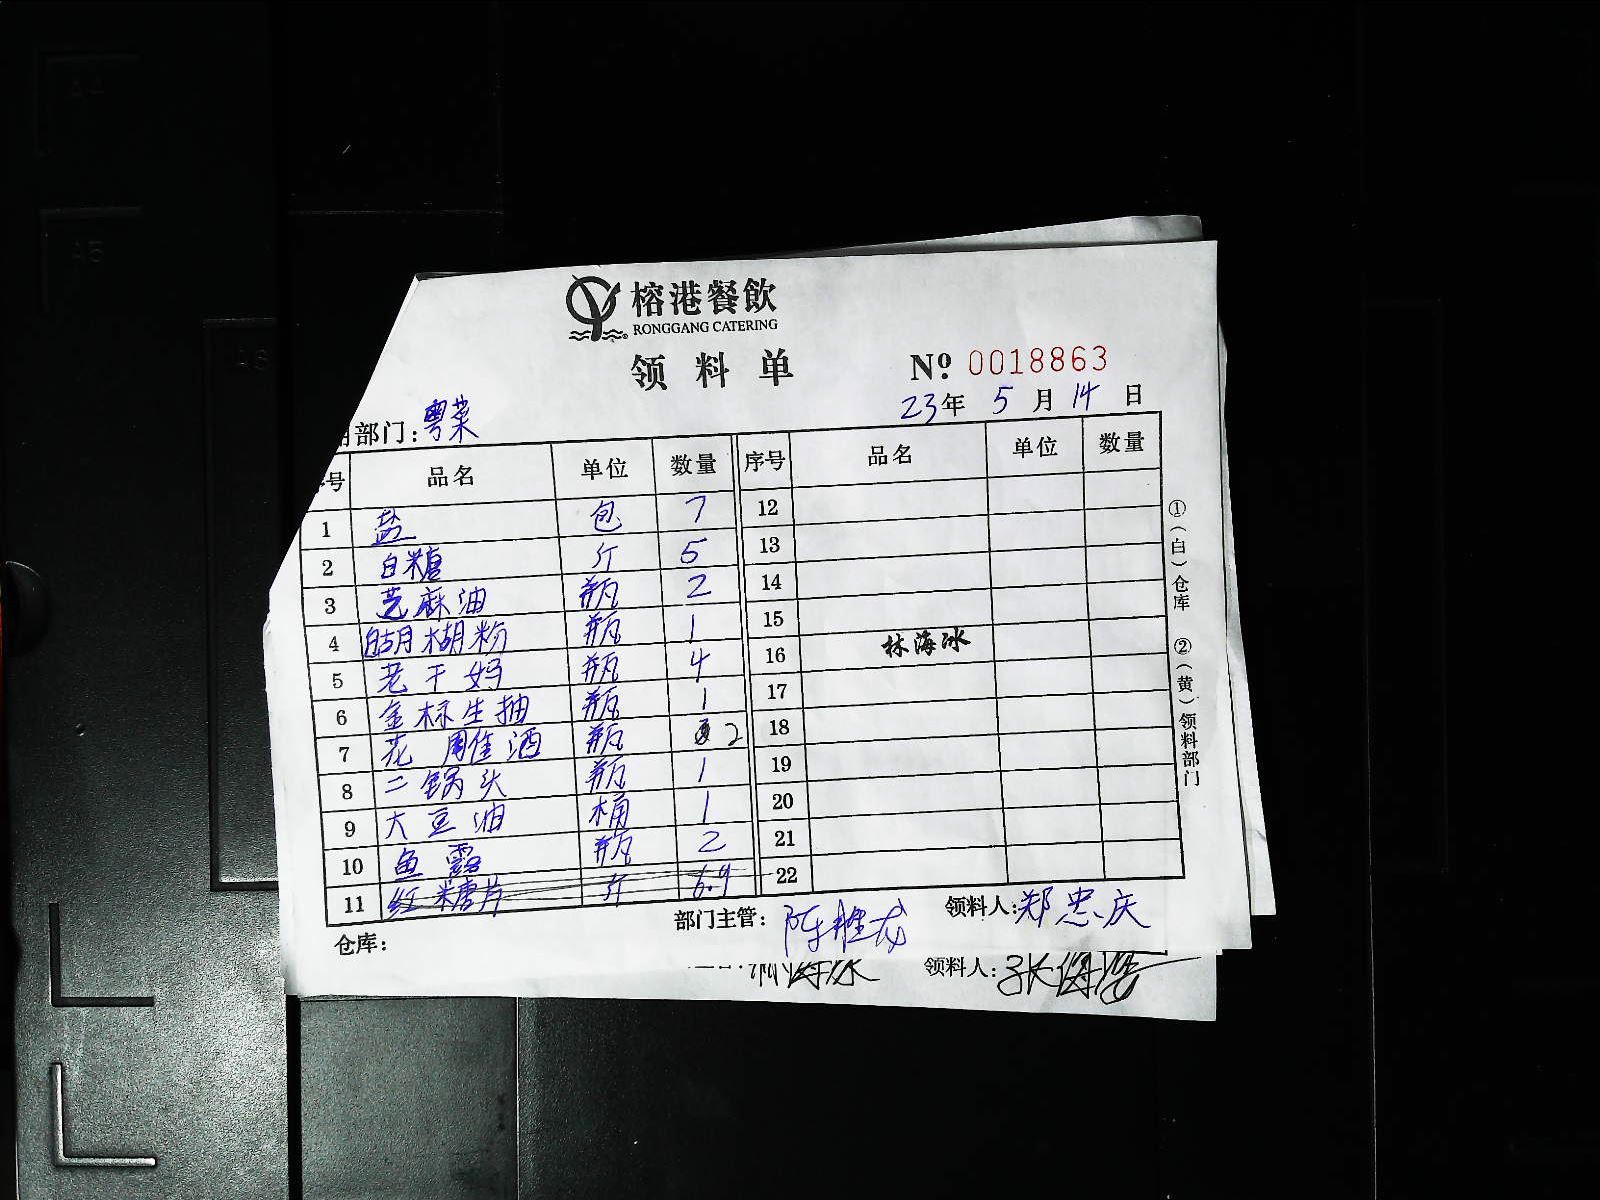 榕港餐飲
RONGGANG CATERING
领料单 Nº 0018863
23年 5月 14日
部门：粤菜
号 品名 单位 数量 序号 品名 单位 数量
1 盐 包 7 12
2 白糖 斤 5 13
3 芝麻油 瓶 2 14
4 胡椒粉 瓶 1 15
5 老干妈 瓶 4 16 林海冰
6 金标生抽 瓶 1 17
7 花雕酒 瓶 2 18
8 二锅头 瓶 1 19
9 大豆油 桶 1 20
10 鱼露 瓶 2 21
11 红糖片 斤 6.9 22
①（白）仓库 ②（黄）领料部门
仓库： 部门主管：陈胜龙 领料人：郑忠庆
领料人：张海浩
A4
A5
A6